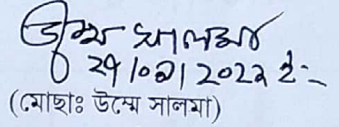 উম্মে সালমা
২৭/০৯/২০২২ ইং
(মোছাঃ উম্মে সালমা)